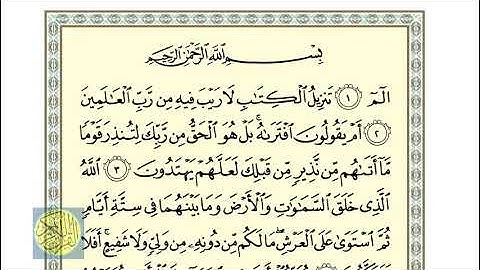 بِسْمِ اللَّهِ الرَّحْمَٰنِ الرَّحِيمِ
الٓمٓ ١ تَنزِيلُ الْكِتَابِ لَا رَيْبَ فِيهِ مِن رَّبِّ الْعَالَمِينَ
٢ أَمْ يَقُولُونَ افْتَرَاهُ ۚ بَلْ هُوَ الْحَقُّ مِن رَّبِّكَ لِتُنذِرَ قَوْمًا
مَّا أَتَاهُم مِّن نَّذِيرٍ مِّن قَبْلِكَ لَعَلَّهُمْ يَهْتَدُونَ ٣ اللَّهُ
الَّذِي خَلَقَ السَّمَاوَاتِ وَالْأَرْضَ وَمَا بَيْنَهُمَا فِي سِتَّةِ أَيَّامٍ
ثُمَّ اسْتَوَىٰ عَلَى الْعَرْشِ ۖ مَا لَكُم مِّن دُونِهِ مِن وَلِيٍّ وَلَا شَفِيعٍ ۚ أَفَلَا